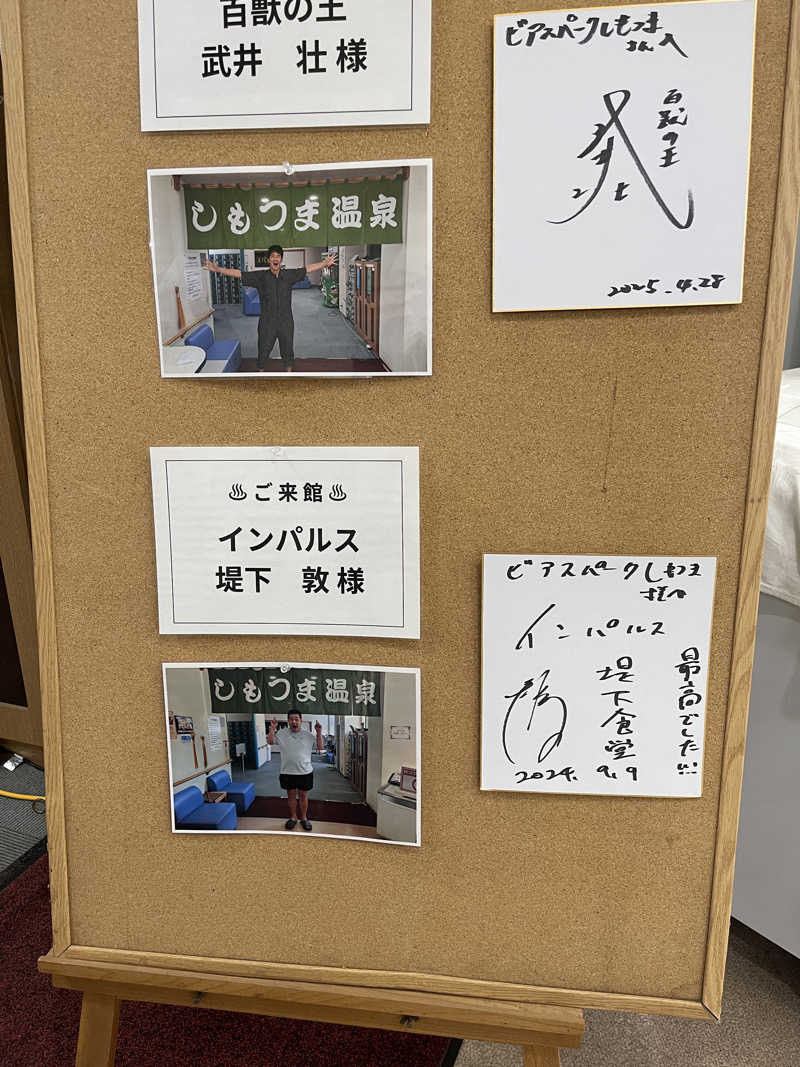 百獣の王
武井 壮様
ビアスパークしもつま
さんへ
百獣の王
2025.4.28
しもつま温泉
♨ご来館♨
インパルス
堤下 敦様
ビアスパークしもつま
さまへ
インパルス
堤下食堂
最高でした!!
2024.9.9
しもつま温泉